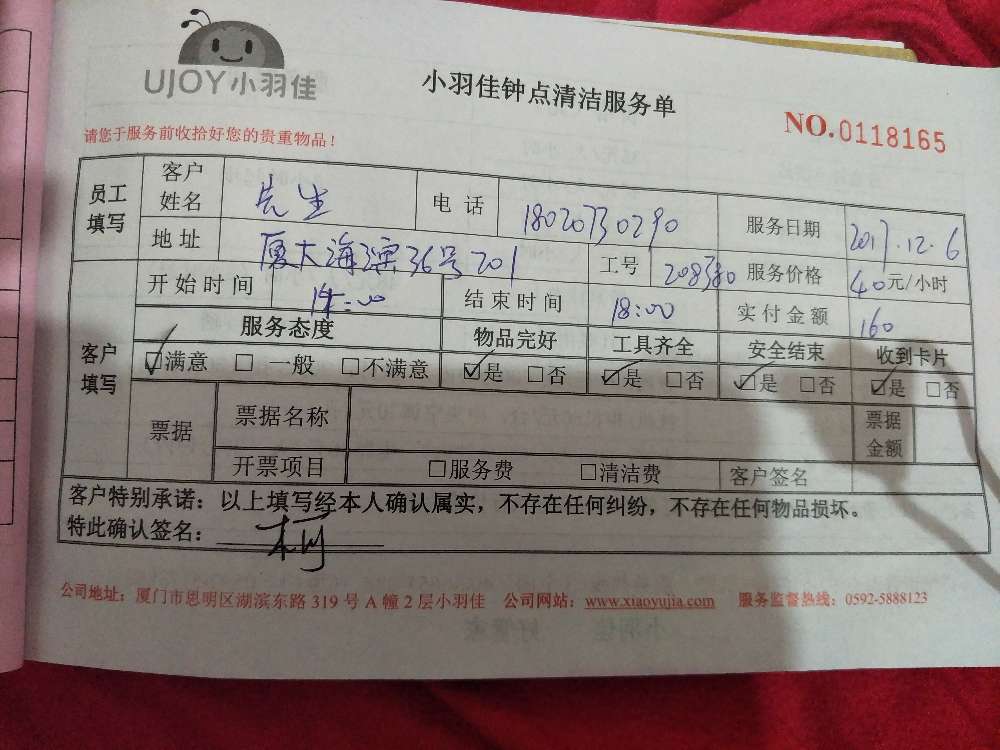 UJOY小羽佳
小羽佳钟点清洁服务单
NO.0118165
请您于服务前收拾好您的贵重物品！
员工填写 客户姓名 先生 电话 18020730290 服务日期 2017.12.6
地址 厦大海滨36号201 工号 服务价格 40元/小时
开始时间 14:00 结束时间 18:00 实付金额 160
客户填写 服务态度 物品完好 工具齐全 安全结束 收到卡片
☑满意 □一般 □不满意 ☑是 □否 ☑是 □否 ☑是 □否 ☑是 □否
票据 票据名称 票据金额
开票项目 □服务费 □清洁费 客户签名
客户特别承诺：以上填写经本人确认属实，不存在任何纠纷，不存在任何物品损坏。
特此确认签名：
公司地址：厦门市思明区湖滨东路 319 号 A 幢 2 层小羽佳 公司网站：www.xiaoyujia.com 服务监督热线：0592-5888123